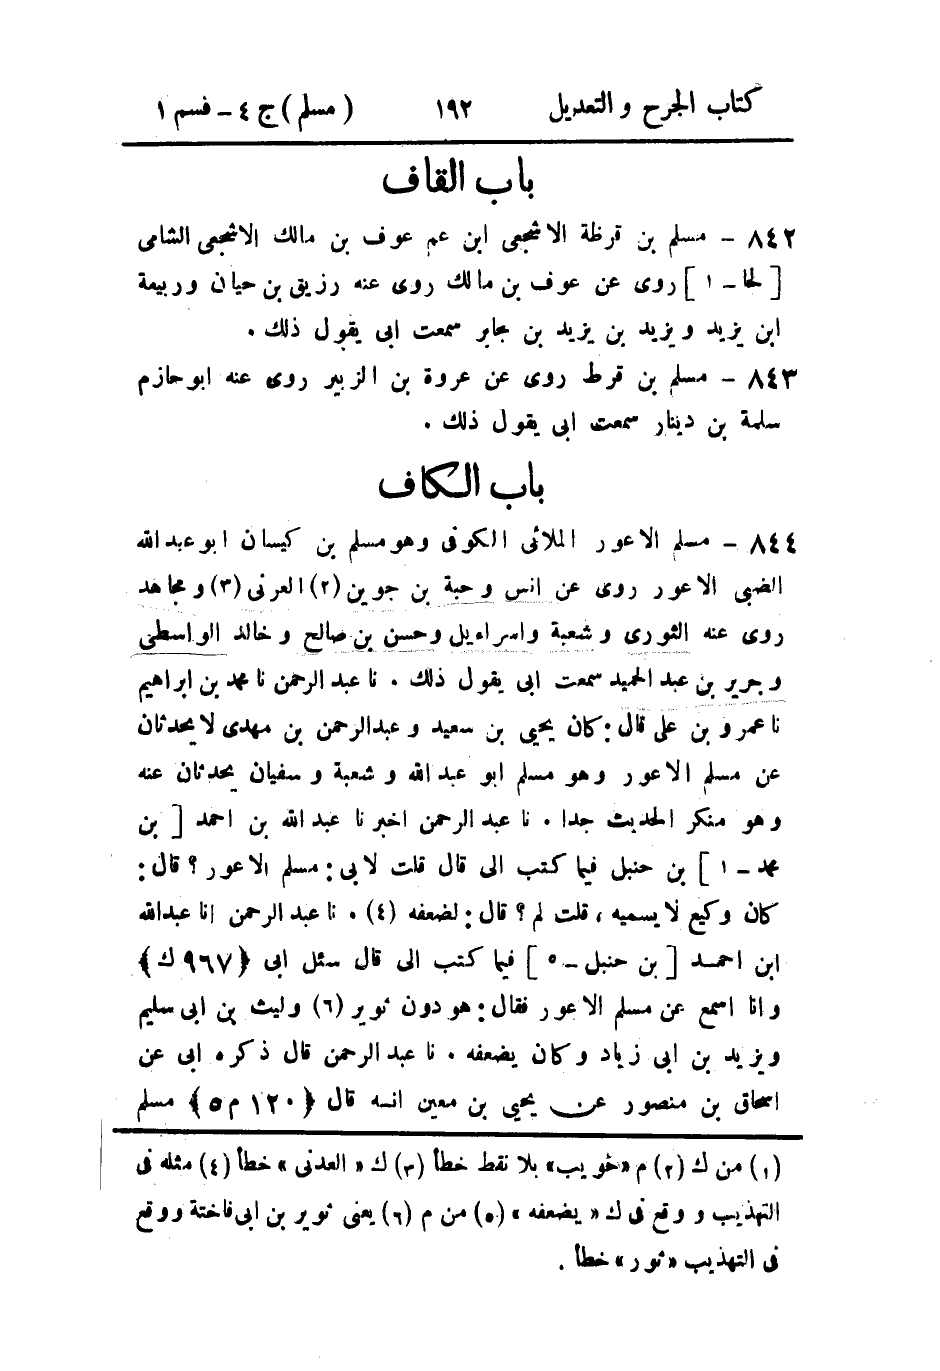 كتاب الجرح و التعديل ١٩٢ ( مسلم ) ج ٤ - قسم ١
باب القاف
٨٤٢ - مسلم بن قرظة الاشجعى ابن عم عوف بن مالك الاشجعى الشامى
[ لحا - ١ ] روى عن عوف بن مالك روى عنه رزيق بن حيان وربيعة
ابن يزيد ويزيد بن يزيد بن جابر سمعت ابى يقول ذلك .
٨٤٣ - مسلم بن قرط روى عن عروة بن الزبير روى عنه ابو حازم
سلمة بن دينار سمعت ابى يقول ذلك .
باب الكاف
٨٤٤ - مسلم الاعور الملائى الكوفى وهو مسلم بن كيسان ابو عبد الله
الضبى الاعور روى عن انس و حبة بن جوين (٢) العرنى (٣) و مجاهد
روى عنه الثورى و شعبة واسراءيل وحسن بن صالح و خالد الواسطى
و جرير بن عبد الحميد سمعت ابى يقول ذلك . نا عبد الرحمن نا محمد بن ابراهيم
نا عمرو بن على قال : كان يحيى بن سعيد و عبد الرحمن بن مهدى لا يحدثان
عن مسلم الاعور وهو مسلم ابو عبد الله و شعبة و سفيان يحدثان عنه
وهو منكر الحديث جدا . نا عبد الرحمن اخبرنا عبد الله بن احمد [ بن
محمد - ١ ] بن حنبل فيما كتب الى قال قلت لابى : مسلم الاعور ؟ قال :
كان وكيع لا يسميه ، قلت لم ؟ قال : لضعفه (٤) . نا عبد الرحمن انا عبد الله
ابن احمد [ بن حنبل - ٥ ] فيما كتب الى قال سئل ابى ﴿٩٦٧ ك﴾
وانا اسمع عن مسلم الاعور فقال : هو دون ثوير (٦) وليث بن ابى سليم
ويزيد بن ابى زياد وكان يضعفه . نا عبد الرحمن قال ذكره ابى عن
اسحاق بن منصور عن يحيى بن معين انه قال ﴿١٢٠ م ٥﴾ مسلم
(١) من ك (٢) م «خويب» بلا نقط خطأ (٣) ك « العدنى » خطأ (٤) مثله فى
التهذيب و وقع فى ك « يضعفه » (٥) من م (٦) يعنى ثوير بن ابى فاختة ووقع
فى التهذيب «ثور» خطأ .